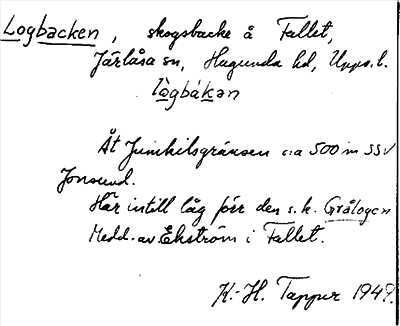 Logbacken, skogsbacke å Fallet,
Järlåsa sn, Hagunda hd, Upps. l.
lògbákən
Åt Jumkilsgränsen c:a 500 m SSV
Jonsund.
Här intill låg förr den s.k. Grålogen
Medd. av Ekström i Fallet.
K.-H. Tapper 1947.